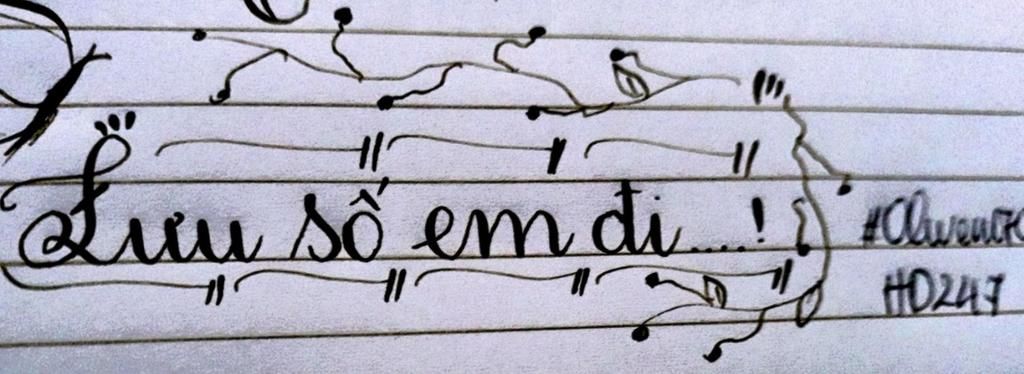 Lưu số em đi....!
HD247